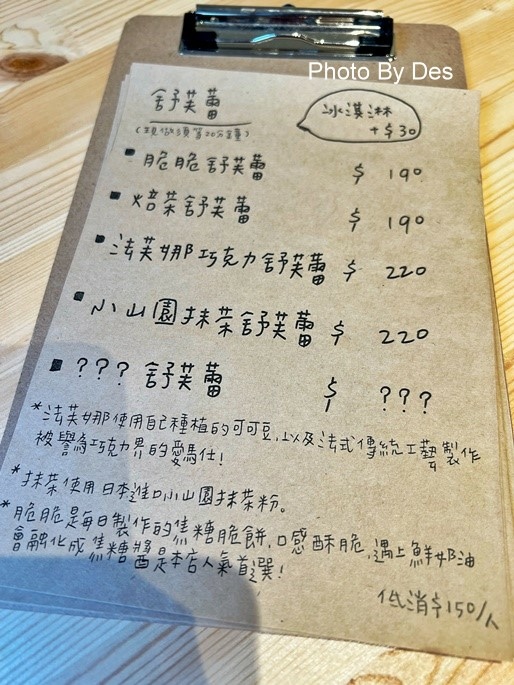 Photo By Des
舒芙蕾
(現做須等20分鐘)
冰淇淋
+$30
脆脆舒芙蕾 $ 190
焙茶舒芙蕾 $ 190
法芙娜巧克力舒芙蕾 $ 220
小山園抹茶舒芙蕾 $ 220
??? 舒芙蕾 $ ???
*法芙娜使用自己種植的可可豆,以及法式傳統工藝製作
被譽為巧克力界的愛馬仕!
*抹茶使用日本進口小山園抹茶粉。
*脆脆是每日製作的焦糖脆餅,口感酥脆,遇上鮮奶油
會融化成焦糖醬是本店人氣首選!
低消$150/人